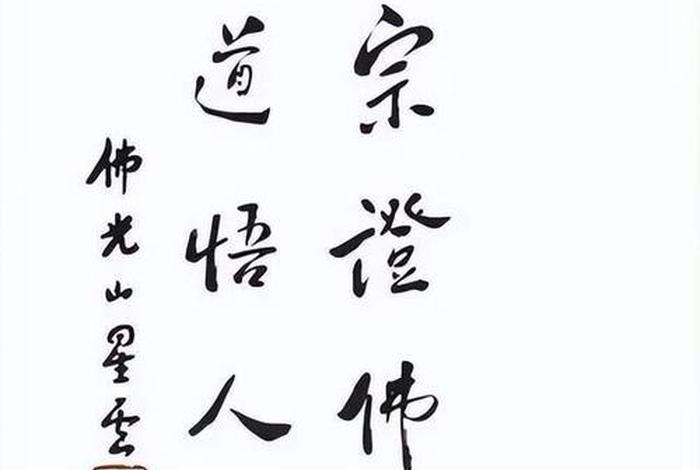 宗證佛
道悟人
佛光山星雲